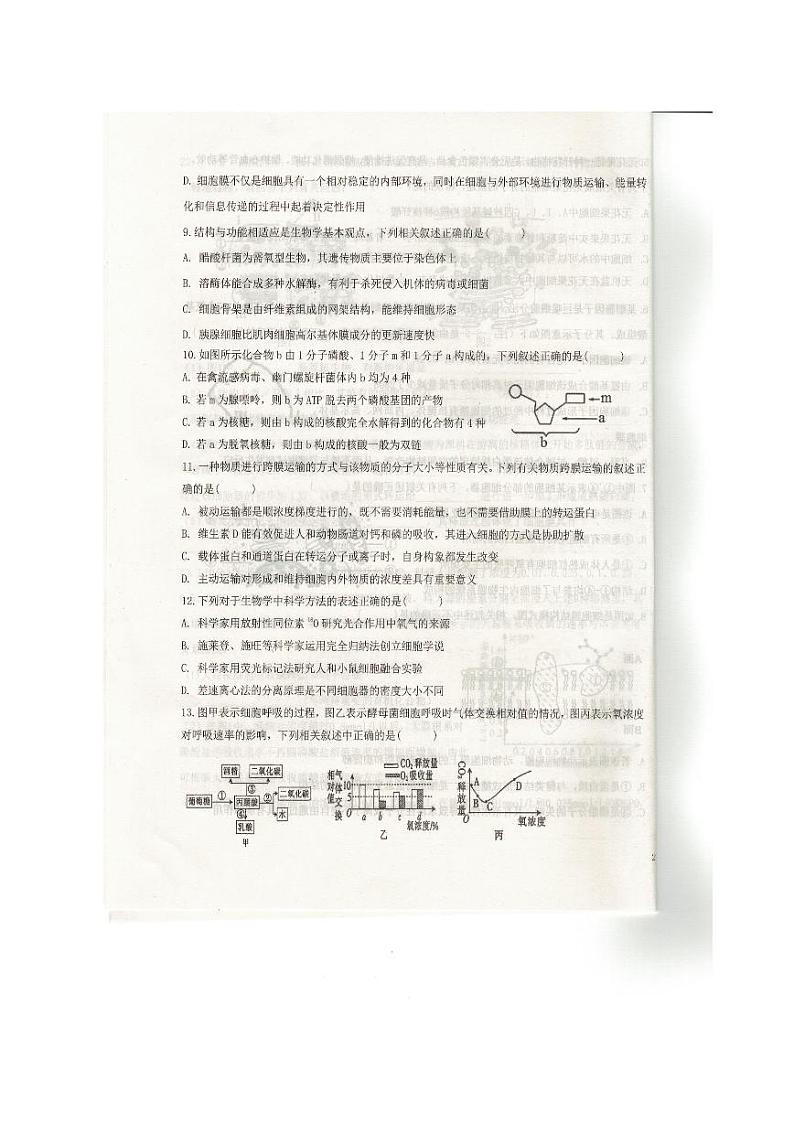 D. 细胞膜不仅是细胞具有一个相对稳定的内部环境，同时在细胞与外部环境进行物质运输、能量转
化和信息传递的过程中起着决定性作用
9.结构与功能相适应是生物学基本观点，下列相关叙述正确的是(　　)
A. 醋酸杆菌为需氧型生物，其遗传物质主要位于染色体上
B. 溶酶体能合成多种水解酶，有利于杀死侵入机体的病毒或细菌
C. 细胞骨架是由纤维素组成的网架结构，能维持细胞形态
D. 胰腺细胞比肌肉细胞高尔基体膜成分的更新速度快
10.如图所示化合物b由1分子磷酸、1分子m和1分子a构成的，下列叙述正确的是(　　)
A. 在禽流感病毒、幽门螺旋杆菌体内b均为4种
B. 若m为腺嘌呤，则b为ATP脱去两个磷酸基团的产物
C. 若a为核糖，则由b构成的核酸完全水解得到的化合物有4种
D. 若a为脱氧核糖，则由b构成的核酸一般为双链
m
a
b
11.一种物质进行跨膜运输的方式与该物质的分子大小等性质有关。下列有关物质跨膜运输的叙述正
确的是(　　)
A. 被动运输都是顺浓度梯度进行的，既不需要消耗能量，也不需要借助膜上的转运蛋白
B. 维生素D能有效促进人和动物肠道对钙和磷的吸收，其进入细胞的方式是协助扩散
C. 载体蛋白和通道蛋白在转运分子或离子时，自身构象都发生改变
D. 主动运输对形成和维持细胞内外物质的浓度差具有重要意义
12.下列对于生物学中科学方法的表述正确的是(　　)
A. 科学家用放射性同位素¹⁸O研究光合作用中氧气的来源
B. 施莱登、施旺等科学家运用完全归纳法创立细胞学说
C. 科学家用荧光标记法研究人和小鼠细胞融合实验
D. 差速离心法的分离原理是不同细胞器的密度大小不同
13.图甲表示细胞呼吸的过程，图乙表示酵母菌细胞呼吸时气体交换相对值的情况，图丙表示氧浓度
对呼吸速率的影响，下列相关叙述中正确的是(　　)
酒精 二氧化碳
葡萄糖 ① 丙酮酸 ③ ② 二氧化碳
水
④
乳酸
甲
CO₂释放量
O₂吸收量
气体交换相对值
10
5
0
a b c d
氧浓度/%
乙
CO₂释放量
A
B
C
D
0
氧浓度
丙
2